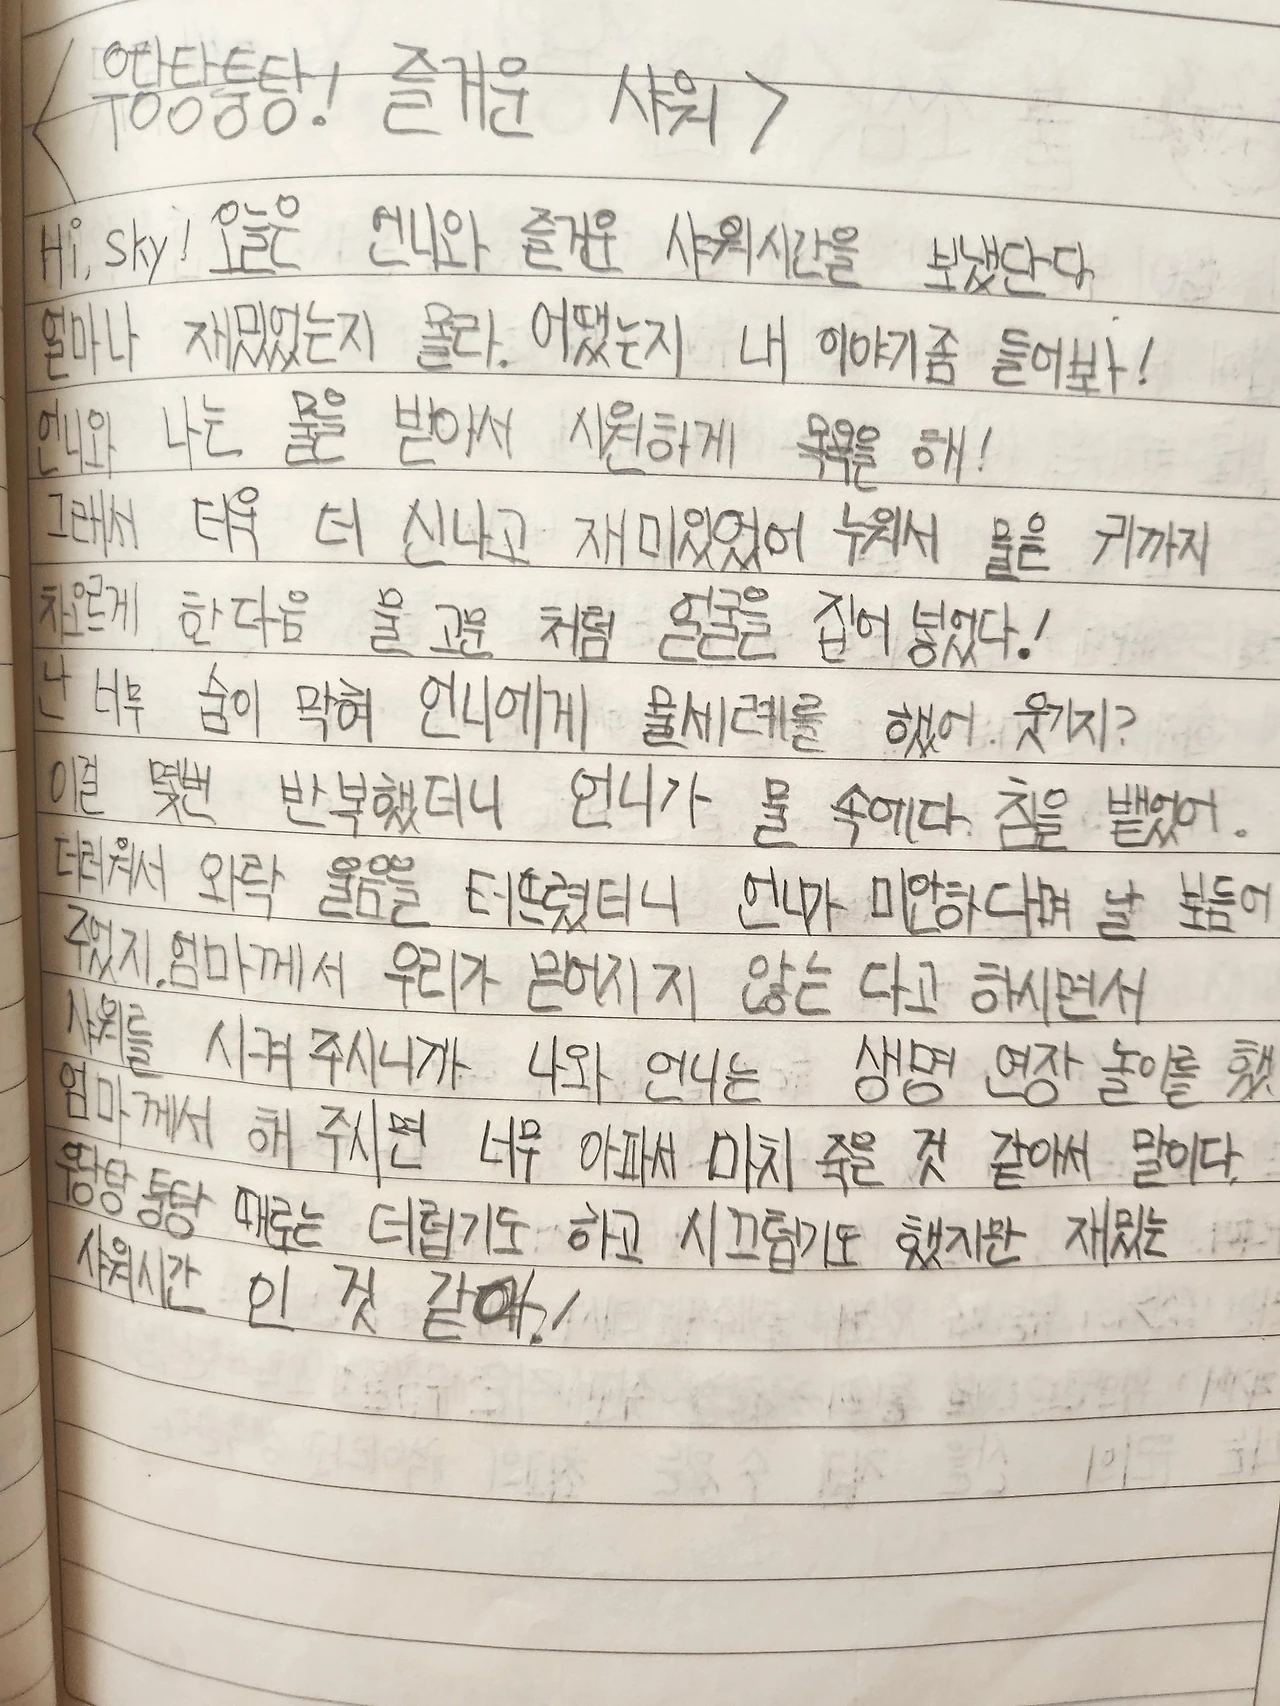 <우당탕퉁탕! 즐거운 샤워>
Hi, Sky! 오늘은 언니와 즐거운 샤워시간을 보냈단다
얼마나 재밌었는지 몰라. 어땠는지 내 이야기좀 들어봐!
언니와 나는 물을 받아서 시원하게 목욕을 해!
그래서 더욱 더 신나고 재미있었어 누워서 물을 귀까지
차오르게 한다음 물고문 처럼 얼굴을 집어넣었다.!
난 너무 숨이 막혀 언니에게 물세례를 했어 웃기지?
이걸 몇번 반복했더니 언니가 물 속에다 침을 뱉었어.
더러워서 와락 울음을 터뜨렸더니 언니가 미안하다며 날 보듬어
주었지. 엄마께서 우리가 믿어지지 않는 다고 하시면서
샤워를 시켜 주시니까 나와 언니는 생명 연장 놀이를 했
엄마께서 해 주시면 너무 아파서 마치 죽을 것 같아서 말이다.
우당탕퉁탕 때로는 더럽기도 하고 시끄럽기도 했지만 재밌는
샤워시간 인 것 같아.!